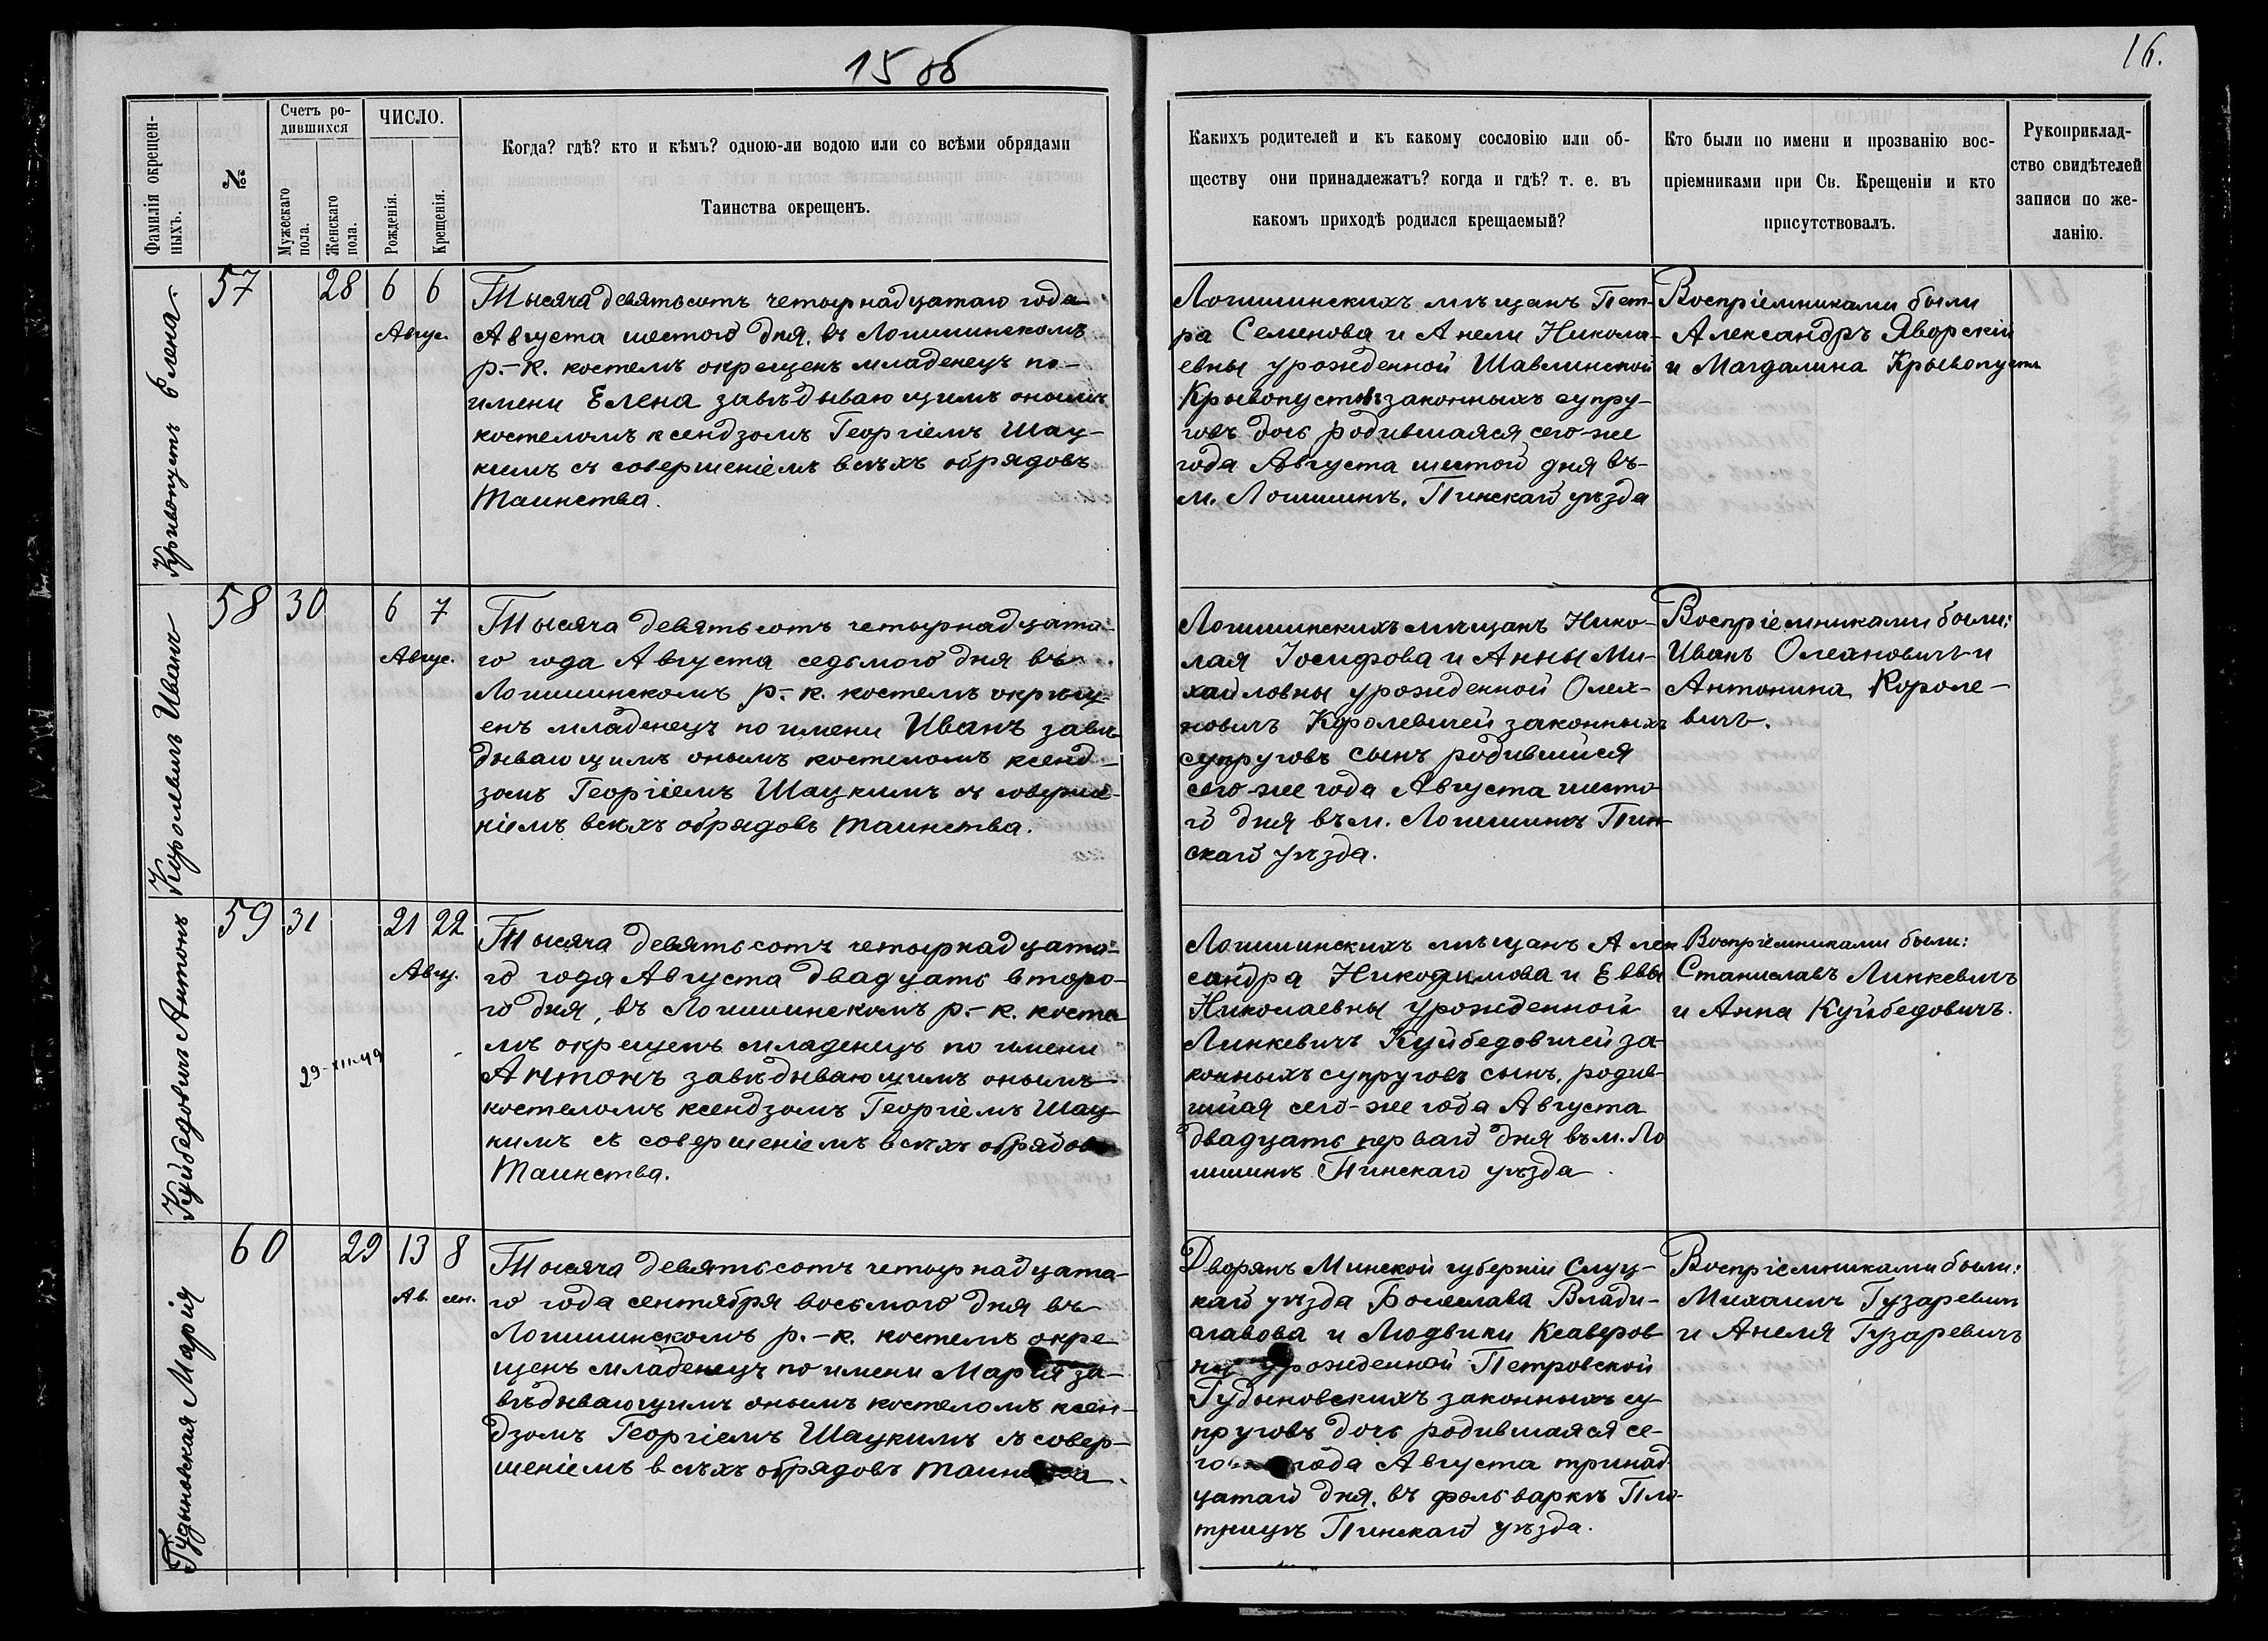 15 об
16.
Фамилія окрещен-
ныхъ.
№
Счетъ ро-
дившихся
Мужескаго
пола.
Женскаго
пола.
ЧИСЛО.
Рожденія.
Крещенія.
Когда? гдѣ? кто и кѣмъ? одною-ли водою или со всѣми обрядами
Таинства окрещенъ.
Какихъ родителей и къ какому сословію или об-
ществу они принадлежатъ? когда и гдѣ? т. е. въ
какомъ приходѣ родился крещаемый?
Кто были по имени и прозванію вос-
пріемниками при Св. Крещеніи и кто
присутствовалъ.
Рукоприклад-
ство свидѣтелей
записи по же-
ланію.
Кривопустъ Елена
57
28
6
6
Авгус.
Тысяча девятьсотъ четырнадцатаго года
Августа шестого дня, въ Логишинскомъ
р.-к. костелѣ окрещенъ младенецъ по-
имени Елена завѣдывающимъ онымъ
костеломъ ксендзомъ Георгіемъ Шац-
кимъ съ совершеніемъ всѣхъ обрядовъ
Таинства.
Логишинскихъ мѣщанъ Пет-
ра Семенова и Анели Никола-
евны урожденной Шавлинской
Крывопустъ законныхъ супру-
говъ дочь родившаяся сего-же
года Августа шестого дня въ
м. Логишинѣ, Пинскаго уѣзда
Воспріемниками были
Александръ Яворскій
и Магдалина Крывопустъ
Королевичъ Иванъ
58
30
6
7
Авгус.
Тысяча девятьсотъ четырнадцата-
го года Августа седьмого дня въ
Логишинскомъ р.-к. костелѣ окрещ-
енъ младенецъ по имени Иванъ завѣ-
дывающимъ онымъ костеломъ ксенд-
зомъ Георгіемъ Шацкимъ съ соверше-
ніемъ всѣхъ обрядовъ таинства.
Логишинскихъ мѣщанъ Нико-
лая Іосифова и Анны Ми-
хайловны урожденной Олех-
новичъ Королевичей законныхъ
супруговъ сынъ родившійся
сего-же года Августа шесто-
го дня въ м. Логишинѣ Пин-
скаго уѣзда.
Воспріемниками были:
Иванъ Олехновичъ и
Антонина Короле-
вичъ.
Куйбедовичъ Антонъ
59
31
21
22
Авгу.
29-XII-49
Тысяча девятьсотъ четырнадцата-
го года Августа двадцать второ-
го дня, въ Логишинскомъ р.-к. косте
лѣ окрещенъ младенецъ по имени
Антонъ завѣдывающимъ онымъ
костеломъ ксендзомъ Георгіемъ Шац-
кимъ съ совершеніемъ всѣхъ обрядовъ
Таинства.
Логишинскихъ мѣщанъ Алек
сандра Никодимова и Еввы
Николаевны урожденной
Линкевичъ Куйбедовичей за-
конныхъ супруговъ сынъ, родив-
шійся сего-же года Августа
двадцать перваго дня въ м. Ло
гишинѣ Пинскаго уѣзда.
Воспріемниками были:
Станиславъ Линкевичъ
и Анна Куйбедовичъ.
Гудыновская Марія
60
29
13
8
Ав.
сен.
Тысяча девятьсотъ четырнадцата-
го года сентября восьмого дня въ
Логишинскомъ р.-к. костелѣ окре
щенъ младенецъ по имени Марія за-
вѣдывающимъ онымъ костеломъ ксен-
дзомъ Георгіемъ Шацкимъ съ совер-
шеніемъ всѣхъ обрядовъ таинства.
Дворянъ Минской губерніи Слуц-
каго уѣзда Болеслава Влади-
славова и Людвики Ксаверов
ны урожденной Петровской
Гудыновскихъ законныхъ су-
пруговъ дочь родившаяся се-
го же года Августа тринад
цатаго дня, въ фольваркѣ Пло-
тницѣ Пинскаго уѣзда.
Воспріемниками были:
Михаилъ Гузаревичъ
и Анеля Гузаревичъ